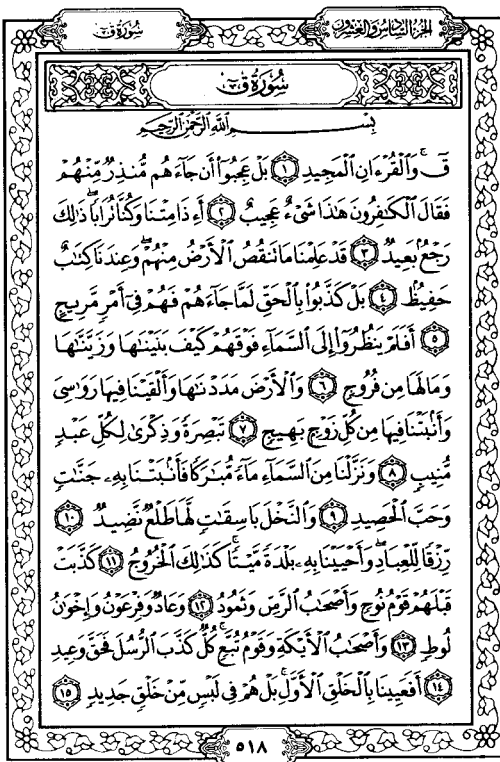 سُورَةُ ق الجُزْءُ السَّادِسُ وَالعِشْرُونَ
سُورَةُ ق
بِسْمِ اللَّهِ الرَّحْمَٰنِ الرَّحِيمِ
قٓ ۚ وَالْقُرْءَانِ الْمَجِيدِ ١ بَلْ عَجِبُوٓا۟ أَن جَآءَهُم مُّنذِرٌ مِّنْهُمْ
فَقَالَ الْكَٰفِرُونَ هَٰذَا شَىْءٌ عَجِيبٌ ٢ أَءِذَا مِتْنَا وَكُنَّا تُرَابًا ۖ ذَٰلِكَ
رَجْعٌۢ بَعِيدٌ ٣ قَدْ عَلِمْنَا مَا تَنقُصُ الْأَرْضُ مِنْهُمْ ۖ وَعِندَنَا كِتَٰبٌ
حَفِيظٌۢ ٤ بَلْ كَذَّبُوا۟ بِالْحَقِّ لَمَّا جَآءَهُمْ فَهُمْ فِىٓ أَمْرٍ مَّرِيجٍ
٥ أَفَلَمْ يَنظُرُوٓا۟ إِلَى السَّمَآءِ فَوْقَهُمْ كَيْفَ بَنَيْنَٰهَا وَزَيَّنَّٰهَا
وَمَا لَهَا مِن فُرُوجٍ ٦ وَالْأَرْضَ مَدَدْنَٰهَا وَأَلْقَيْنَا فِيهَا رَوَٰسِىَ
وَأَنۢبَتْنَا فِيهَا مِن كُلِّ زَوْجٍۭ بَهِيجٍ ٧ تَبْصِرَةً وَذِكْرَىٰ لِكُلِّ عَبْدٍ
مُّنِيبٍ ٨ وَنَزَّلْنَا مِنَ السَّمَآءِ مَآءً مُّبَٰرَكًا فَأَنۢبَتْنَا بِهِۦ جَنَّٰتٍ
وَحَبَّ الْحَصِيدِ ٩ وَالنَّخْلَ بَاسِقَٰتٍ لَّهَا طَلْعٌ نَّضِيدٌ ١٠
رِّزْقًا لِّلْعِبَادِ ۖ وَأَحْيَيْنَا بِهِۦ بَلْدَةً مَّيْتًا ۚ كَذَٰلِكَ الْخُرُوجُ ١١ كَذَّبَتْ
قَبْلَهُمْ قَوْمُ نُوحٍ وَأَصْحَٰبُ الرَّسِّ وَثَمُودُ ١٢ وَعَادٌ وَفِرْعَوْنُ وَإِخْوَٰنُ
لُوطٍ ١٣ وَأَصْحَٰبُ الْأَيْكَةِ وَقَوْمُ تُبَّعٍ ۚ كُلٌّ كَذَّبَ الرُّسُلَ فَحَقَّ وَعِيدِ
١٤ أَفَعَيِينَا بِالْخَلْقِ الْأَوَّلِ ۚ بَلْ هُمْ فِى لَبْسٍ مِّنْ خَلْقٍ جَدِيدٍ ١٥
٥١٨